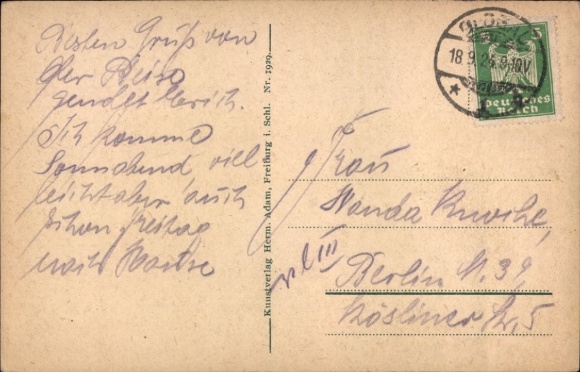 Besten Gruß von
der Reise
sendet Erich.
Ich komme
Sonnabend, viel
leicht aber auch
schon freitag
nach Hause
Kunstverlag Herm. Adam, Freiburg i. Schl. Nr. 1929.
18.9.25.9-10V
5
Deutsches
Reich
Frau
Wanda
Berlin N. 39,
Kösliner Str, 5
III